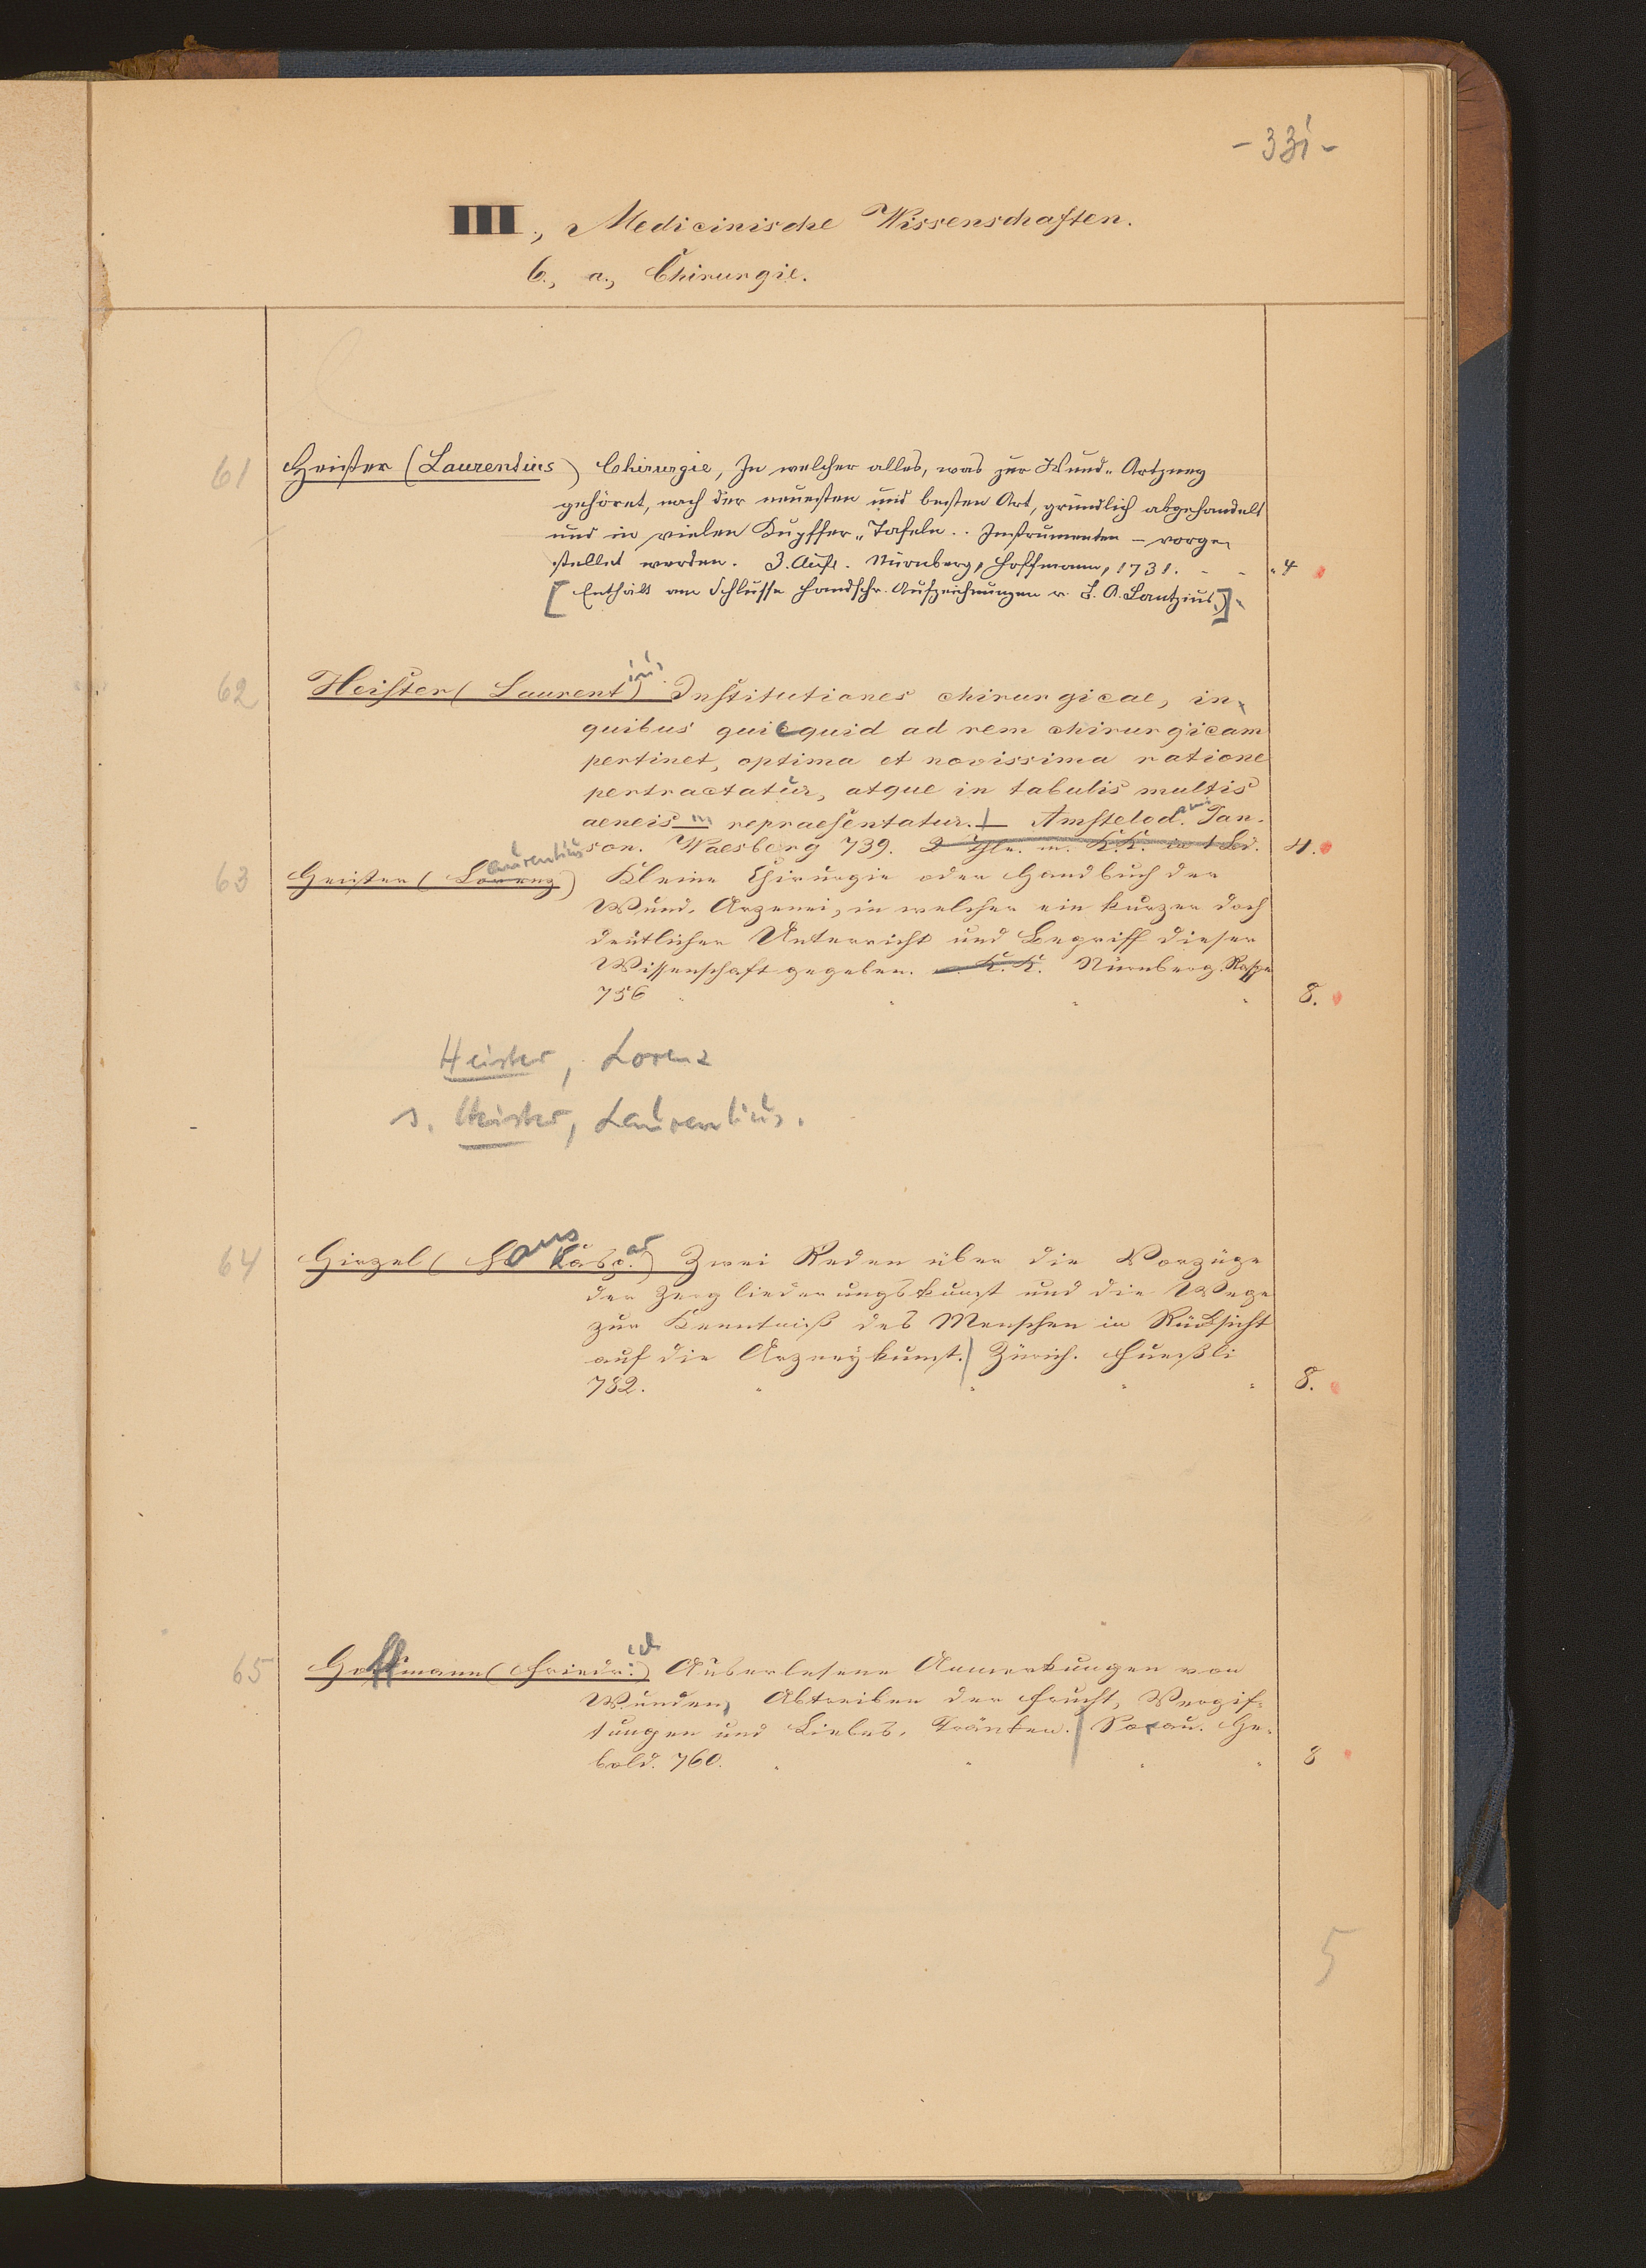 - 331 -
III., Medicinische Wissenschaften.
6., a., Chirurgie.
61 Heister (Laurentius) Chirurgie, In welcher alles, was zur Wund-Artzney
gehöret, nach der neuesten und besten Art, gründlich abgehandelt
und in vielen Kupffer-Tafeln .. Instrumenten - vorge-
stellet werden. 3. Aufl. Nürnberg, Hoffmann, 1731. 4
[Enthält am Schlusse handschr. Aufzeichnungen v. L. A. Lantzius.)]
62 Heister (Laurentius) Institutiones chirurgicae, in
quibus quicquid ad rem chirurgicam
pertinet, optima et novissima ratione
pertractatur, atque in tabulis multis
aeneis repraesentatur. Amstelod. Jan-
son. Waesberg 739. 2 Thle. m. K.K. in 1 Bd. 4.
63 Heister (Lorenz) aurentius Kleine Chirurgie oder Handbuch der
Wund-Arzenei, in welcher ein kurzer doch
deutlicher Unterricht und Begriff dieser
Wissenschaft gegeben. m. K.K. Nürnberg. Raspe
756 8.
Heister, Lorenz
s. Heister, Laurentius.
64 Hirzel (Hans Kaspar) Zwei Reden über die Vorzüge
der Zergliederungskunst und die Wege
zur Kenntniß des Menschen in Rücksicht
auf die Arzneykunst. Zürich. Fueßli
782. 8.
65 Hoffmann (Friedrich) Auserlesene Anmerkungen von
Wunden, Abtreiben der Frucht, Vergif-
tungen und Liebes-Tränken. Sorau. He-
bold. 760. 8
5